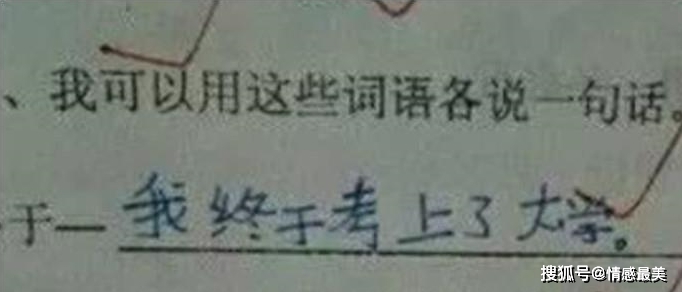 、我可以用这些词语各说一句话。
于—我终于考上了大学。
搜狐号@情感最美